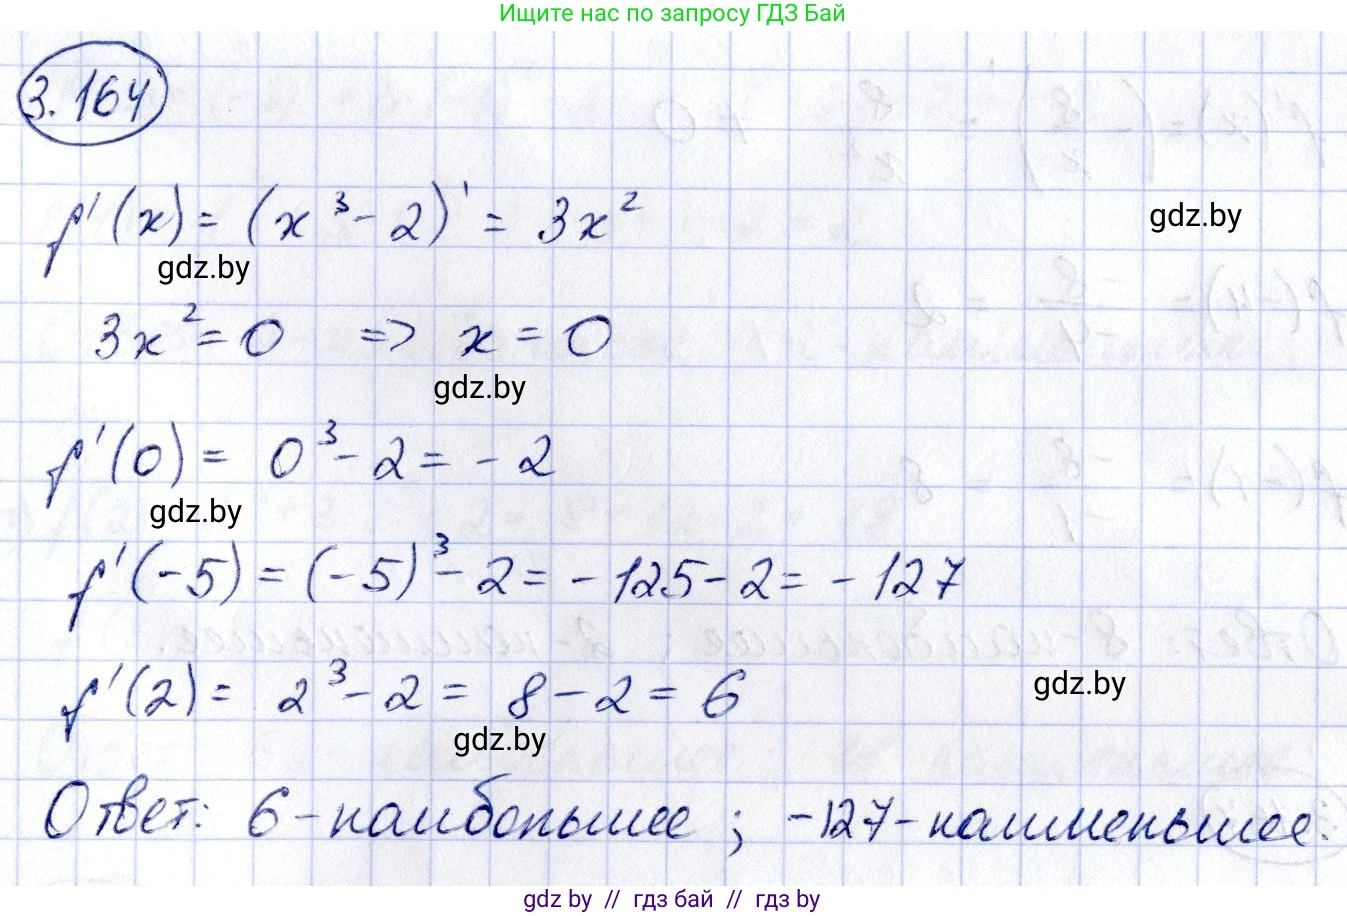 Ищите нас по запросу ГДЗ Бай
3.164
f'(x) = (x³ - 2)' = 3x²
gdz.by
gdz.by
3x² = 0 => x = 0
gdz.by
f'(0) = 0³ - 2 = - 2
gdz.by
f'(-5) = (-5)³ - 2 = - 125 - 2 = - 127
f'(2) = 2³ - 2 = 8 - 2 = 6
gdz.by
gdz.by
Ответ: 6 - наибольшее ; -127 - наименьшее.
gdz.by // гдз бай // гдз by